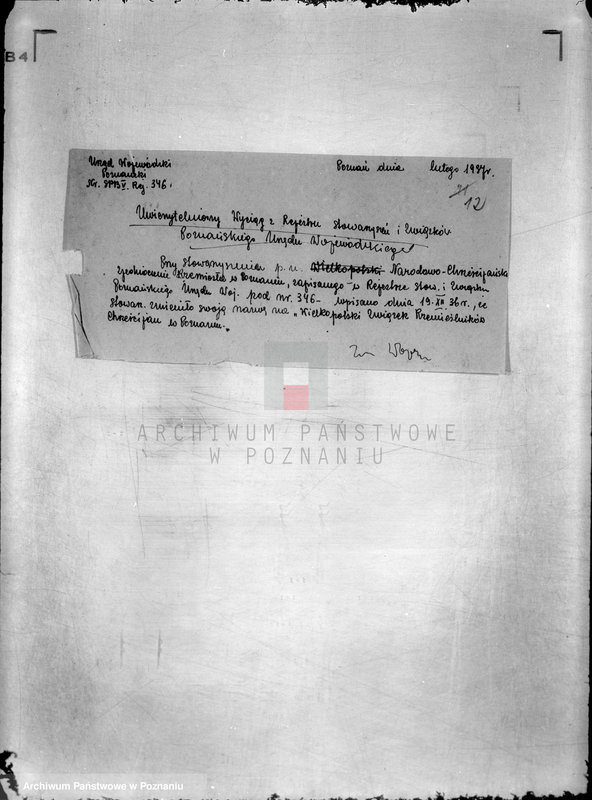 B4
Urząd Wojewódzki Poznań dnia lutego 1937r.
Poznański
Nr. SPB V. Rej. 346.
12
Uwierzytelniony Wyciąg z Rejestru Stowarzyszeń i Związków
Poznańskiego Urzędu Wojewódzkiego
Przy stowarzyszeniu p. n. Wielkopolski Narodowo-Chrześcijańskie
Zjednoczenie Rzemiosła w Poznaniu, zapisanego w Rejestrze Stow. i Związków
Poznańskiego Urzędu Woj. pod nr. 346 - wpisano dnia 19.XII 36 r., że
Stowarz. zmieniło swoją nazwę na „Wielkopolski Związek Rzemieślników
Chrześcijan w Poznaniu."
ARCHIWUM PAŃSTWOWE
W POZNANIU
Archiwum Państwowe w Poznaniu